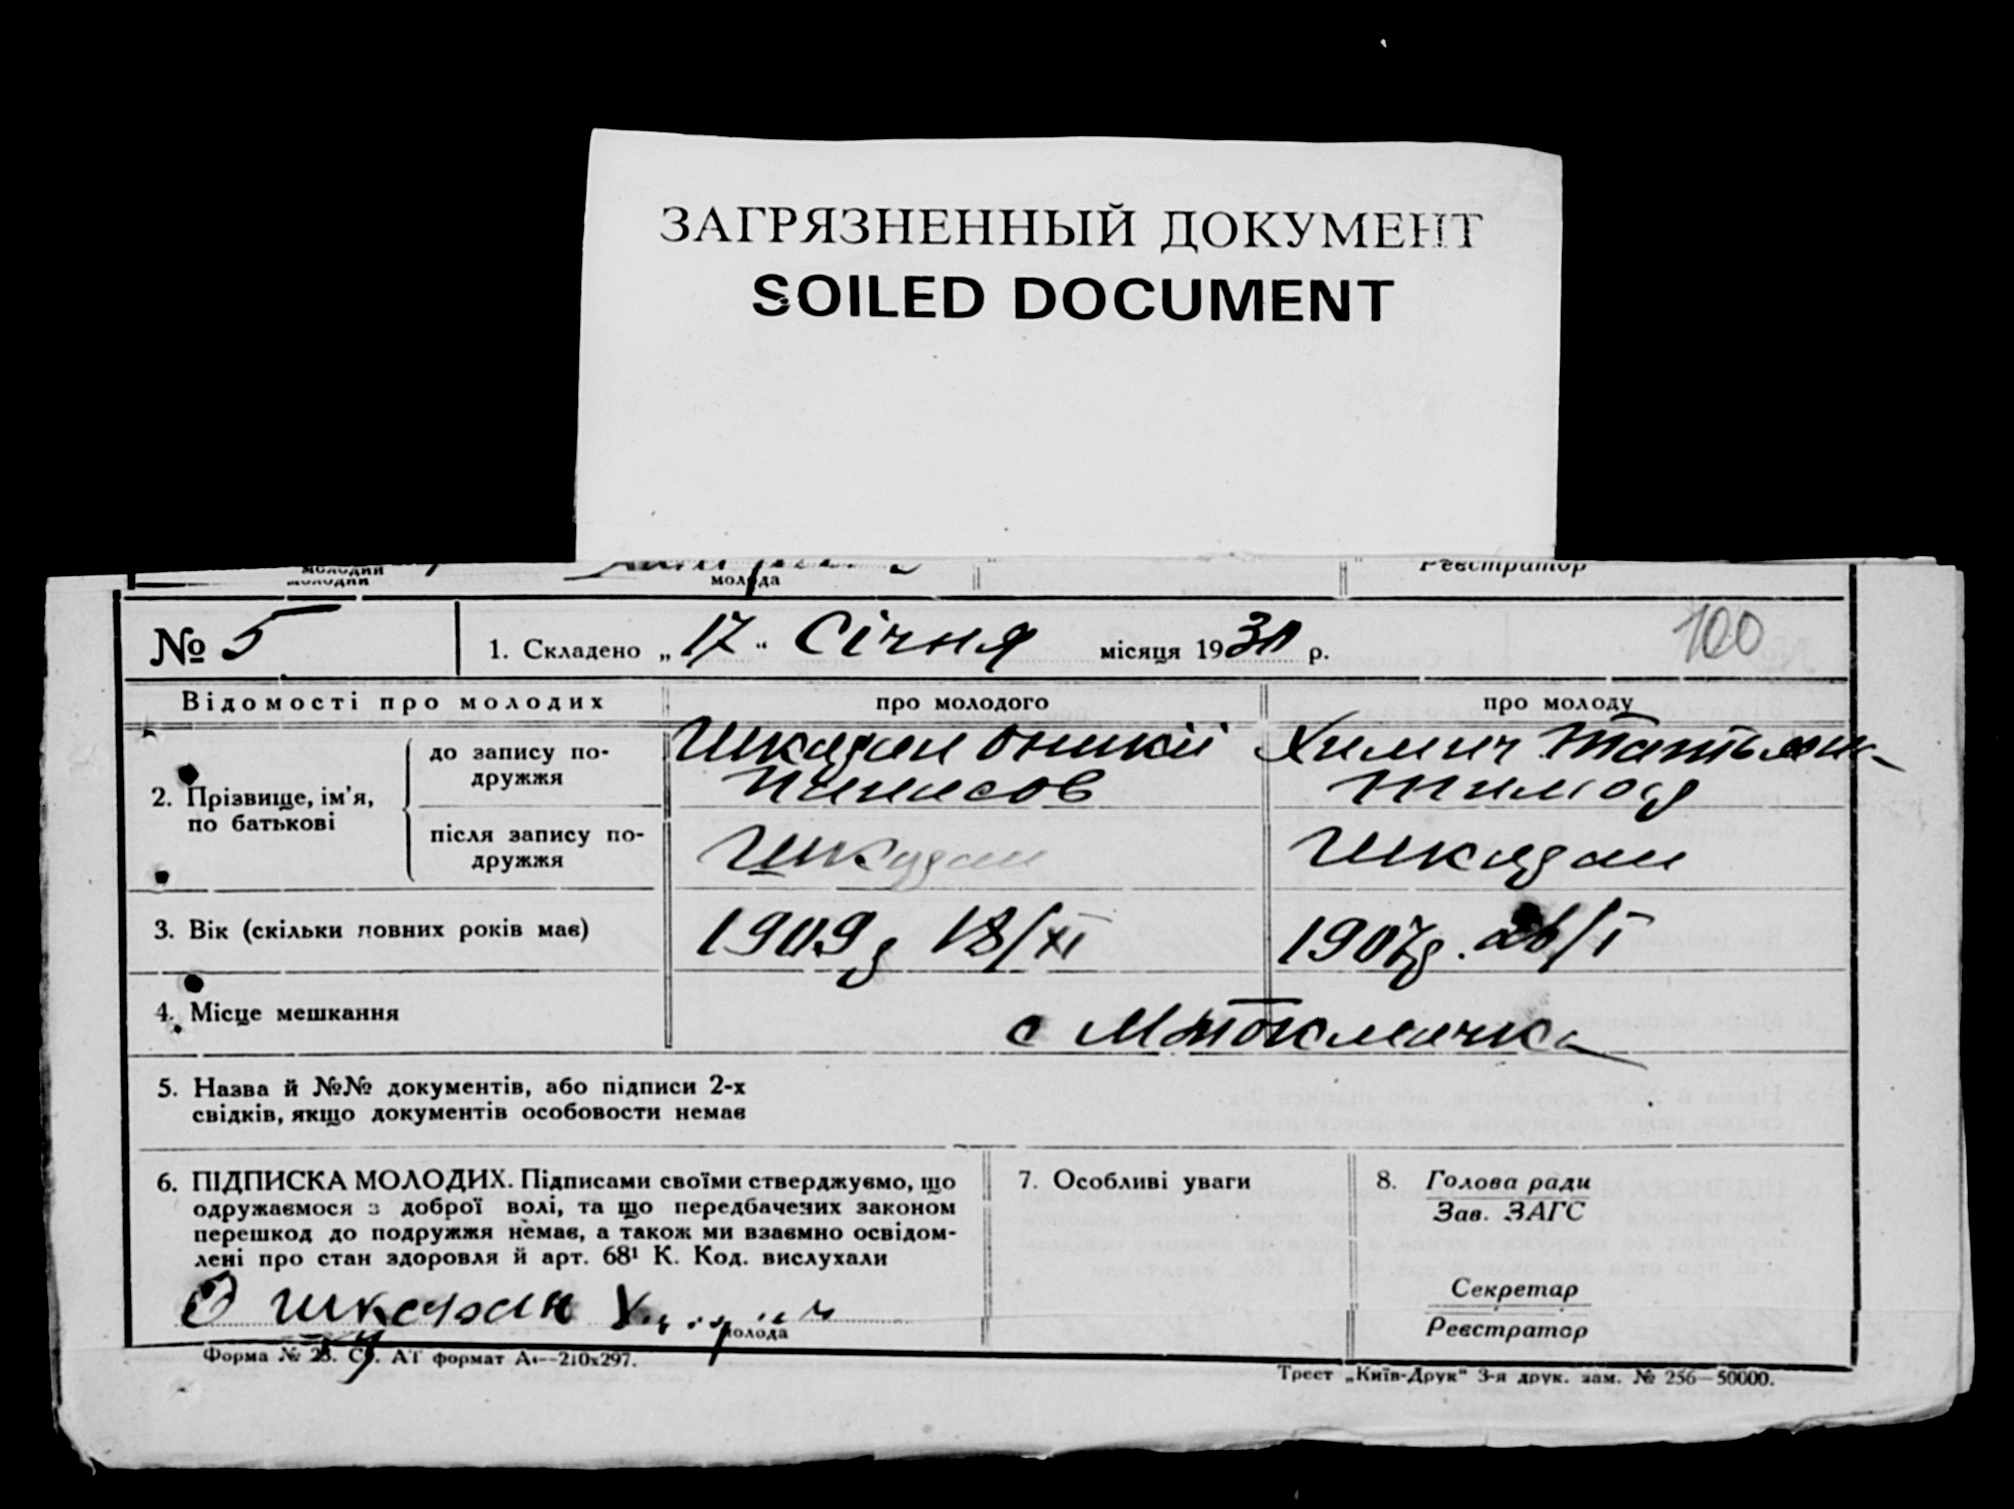 ЗАГРЯЗНЕННЫЙ ДОКУМЕНТ
SOILED DOCUMENT
молодий
молода
Реєстратор
№ 5
1. Складено „17“ Січня місяця 1931 р.
100
Відомості про молодих
про молодого
про молоду
2. Прізвище, ім'я, по батькові
до запису по-
дружжя
Шкадан
Химич Татьяна
Тимоф
після запису по-
дружжя
Шкадан
Шкадан
3. Вік (скільки повних років має)
1909 18/XI
1907 26/I
4. Місце мешкання
с М Токмачка
5. Назва й №№ документів, або підписи 2-х
свідків, якщо документів особовости немає
6. ПІДПИСКА МОЛОДИХ. Підписами своїми стверджуємо, що
одружаємося з доброї волі, та що передбачених законом
перешкод до подружжя немає, а також ми взаємно освідом-
лені про стан здоровля й арт. 68¹ К. Код. вислухали
Шкадан
молода
7. Особливі уваги
8. Голова ради
Зав. ЗАГС
Секретар
Реєстратор
Форма № 23. Ст. АТ формат А4—210x297.
Трест „Київ-Друк“ 3-я друк. зам. № 256—50000.